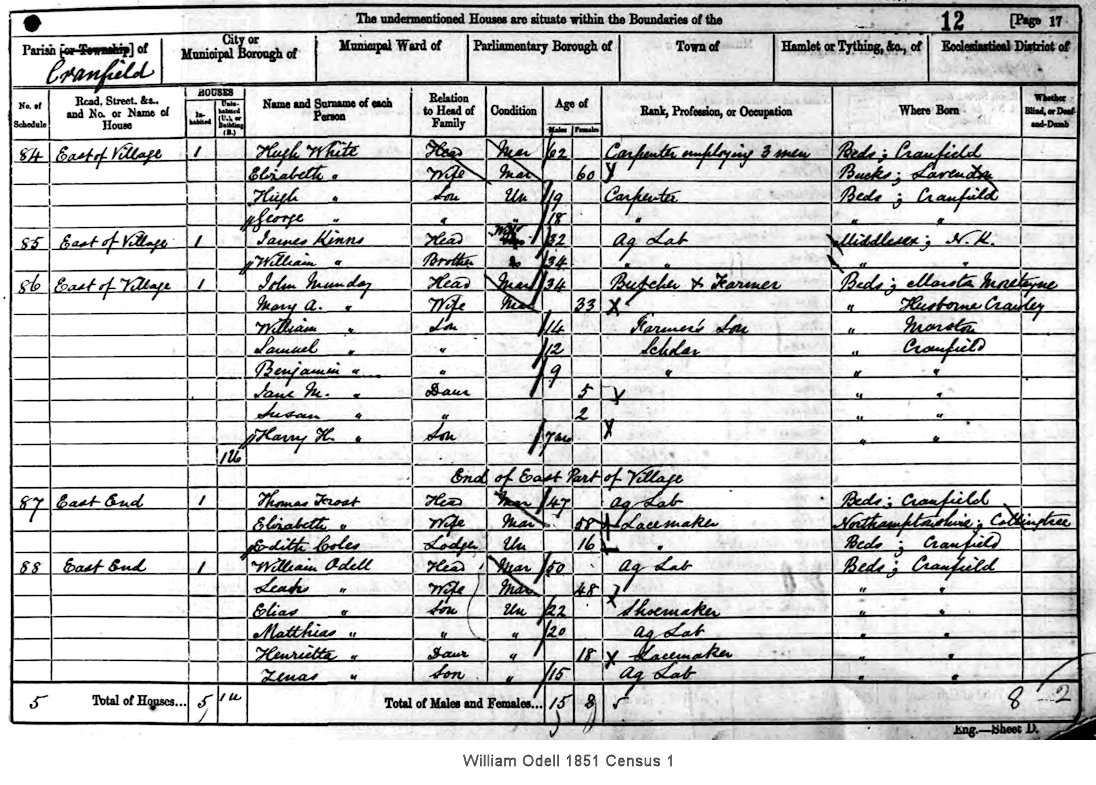 The undermentioned Houses are situate within the Boundaries of the 12 [Page 17
Parish [or Township] of Cranfield City or Municipal Borough of Municipal Ward of Parliamentary Borough of Town of Hamlet or Tything, &c., of Ecclesiastical District of
No. of Schedule Road, Street, &c., and No. or Name of House HOUSES Inhabited Uninhabited (U.), or Building (B.) Name and Surname of each Person Relation to Head of Family Condition Age of Males Females Rank, Profession, or Occupation Where Born Whether Blind, or Deaf-and-Dumb
84 East of Village 1 Hugh White Head Mar 62 Carpenter employing 3 men Beds; Cranfield
Elizabeth " Wife Mar 60 Bucks; Lavendon
Hugh " Son Un 19 Carpenter Beds; Cranfield
George " " " 18 " " "
85 East of Village 1 James Kinns Head 32 Ag Lab Middlesex; N. K.
William " Brother 34 " " " "
86 East of Village 1 John Munday Head Mar 34 Butcher & Farmer Beds; Marston Moretayne
Mary A. " Wife Mar 33 " Husborne Crawley
William " Son 14 Farmer's Son " Marston
Samuel " " 12 Scholar " Cranfield
Benjamin " " 9 " " "
Jane M. " Daur 5 " "
Susan " " 2 " "
Harry H. " Son 7 mo " "
1U
End of East Part of Village
87 East End 1 Thomas Frost Head Mar 47 Ag Lab Beds; Cranfield
Elizabeth " Wife Mar 58 Lacemaker Northamptonshire; Collingtree
Edith Coles Lodger Un 16 " Beds; Cranfield
88 East End 1 William Odell Head Mar 50 Ag Lab Beds; Cranfield
Leah " Wife Mar 48 " "
Elias " Son Un 22 Shoemaker " "
Matthias " " " 20 Ag Lab " "
Henrietta " Daur " 18 Lacemaker " "
Zenas " Son " 15 Ag Lab " "
5 Total of Houses... 5 1U Total of Males and Females... 15 8 8 2
Eng.—Sheet D.
William Odell 1851 Census 1